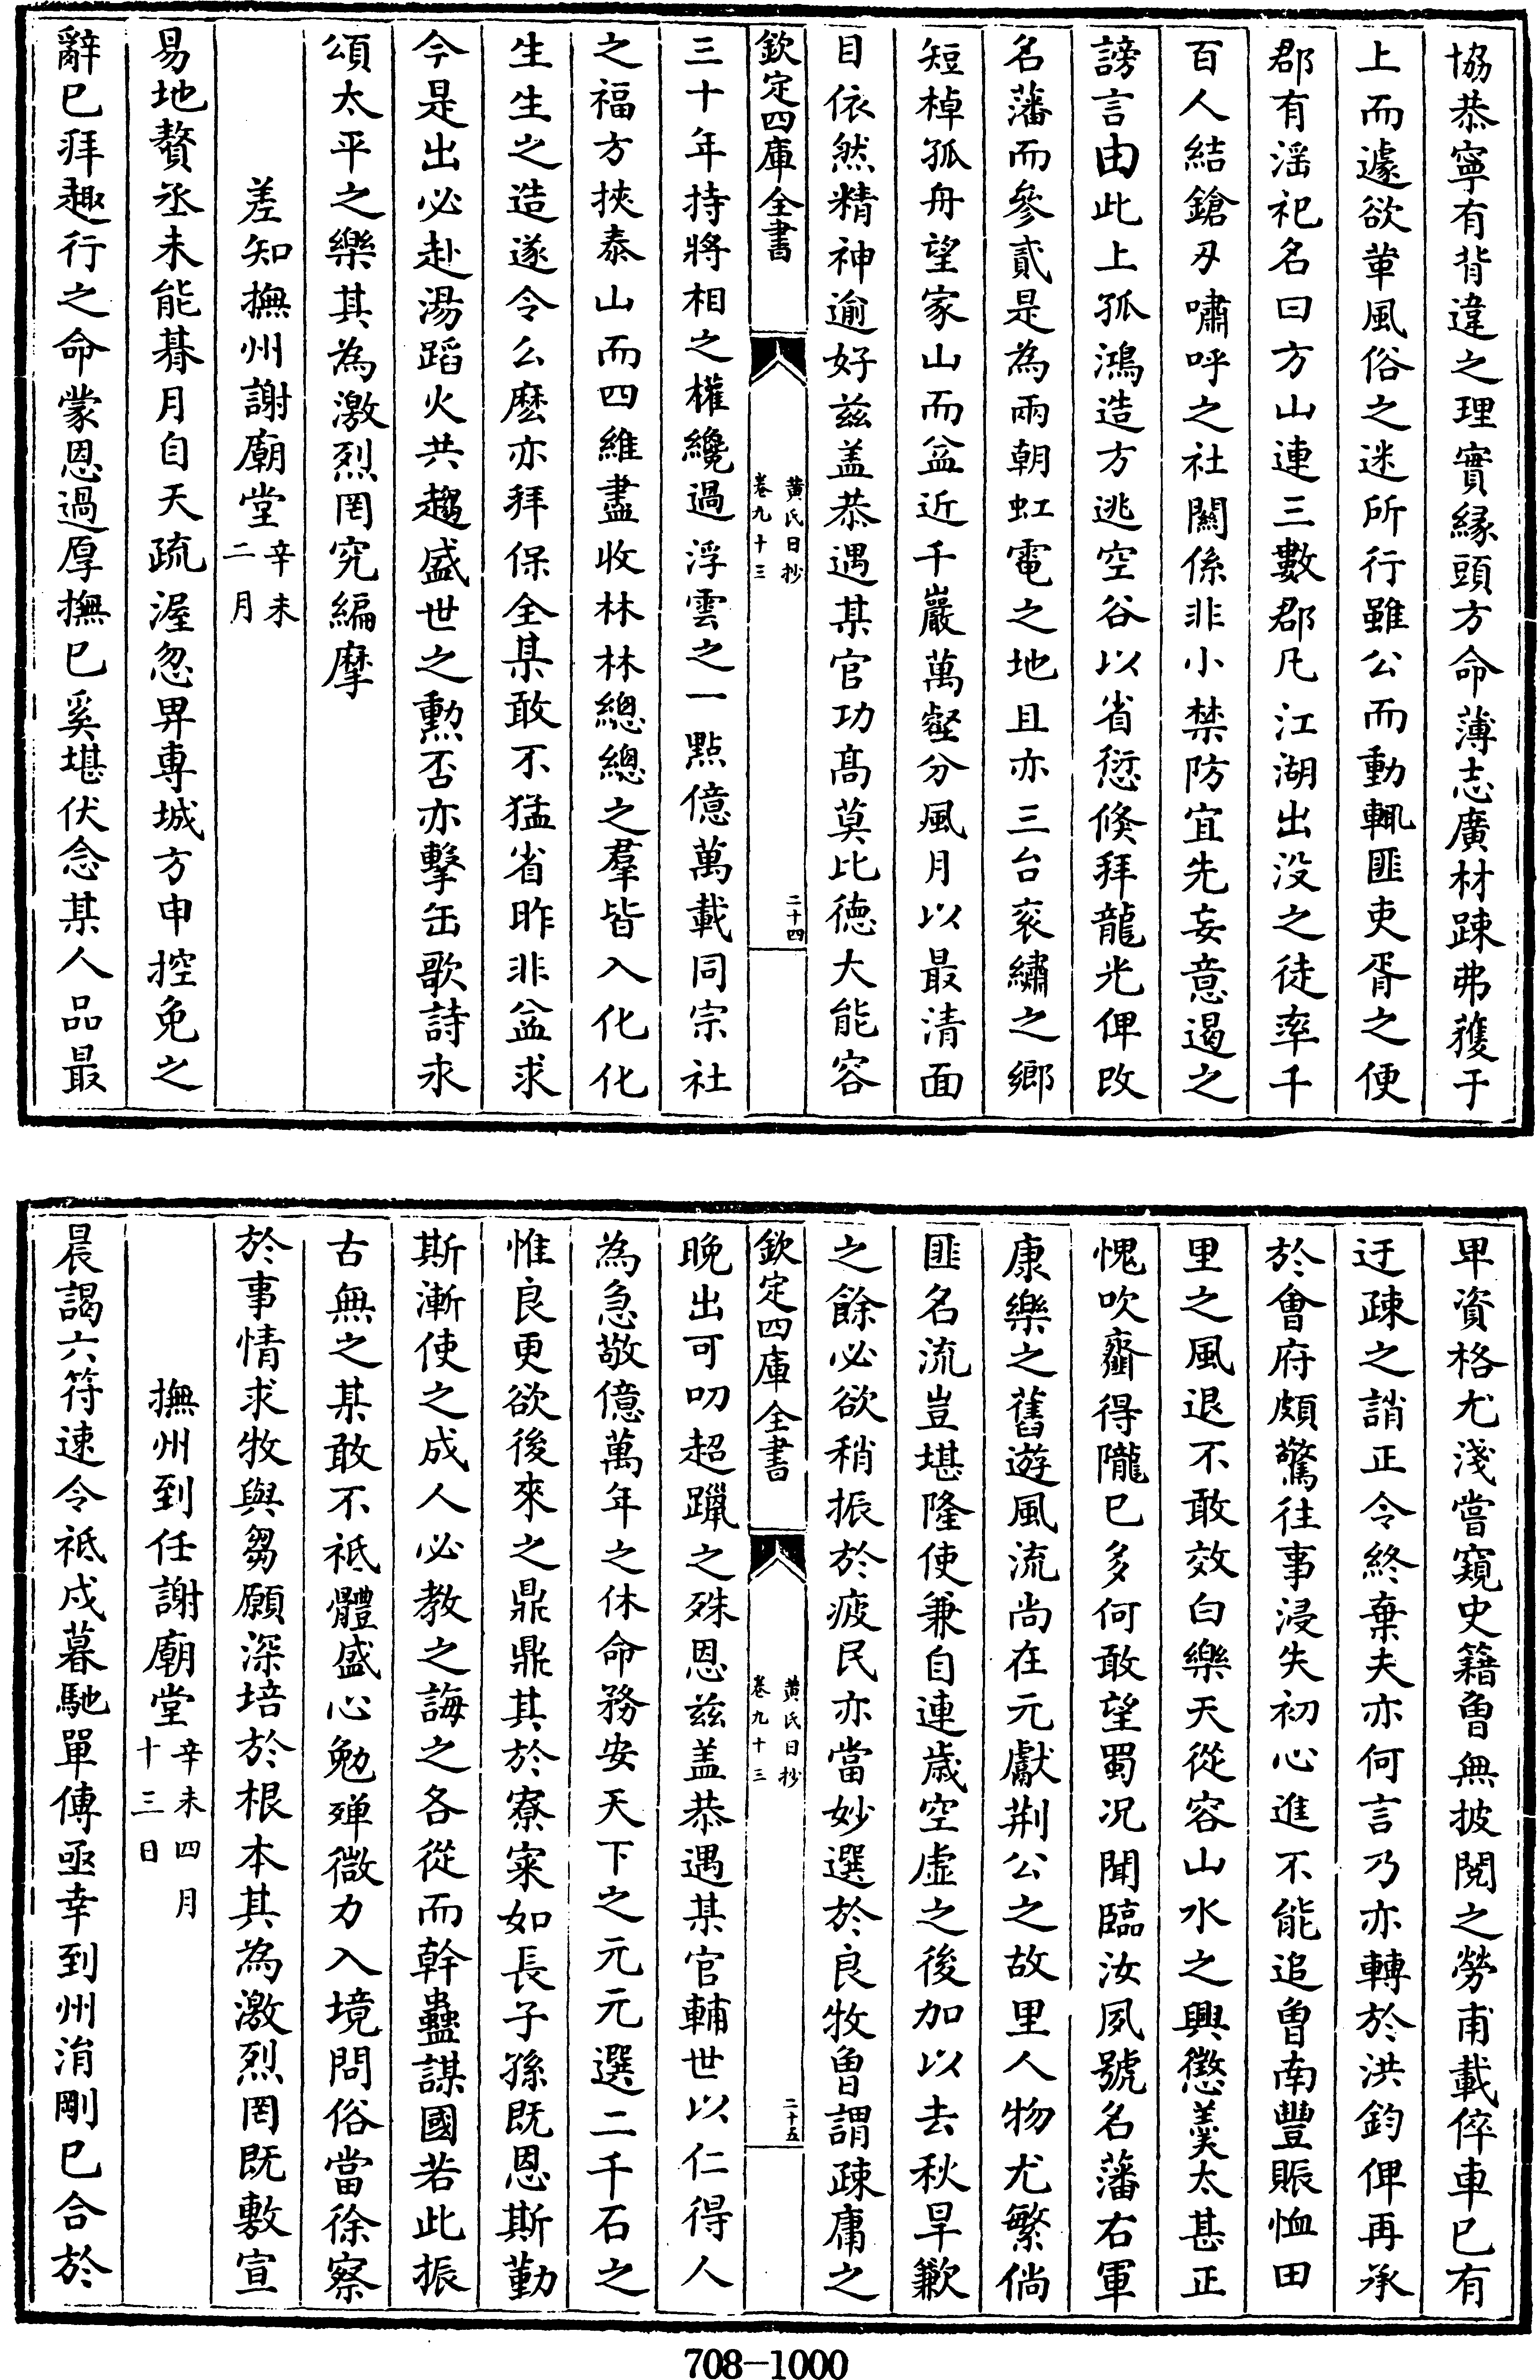 協恭寧有背違之理實縁頭方命薄志廣材踈弗獲于
上而遽欲革風俗之迷所行雖公而動輒匪吏胥之便
郡有滛祀名曰方山連三數郡凡江湖出没之徒率千
百人結鎗刄嘯呼之社關係非小禁防宜先妄意遏之
謗言由此上孤鴻造方逃空谷以省愆倐拜龍光俾改
名藩而參貳是為兩朝虹電之地且亦三台衮繡之鄉
短棹孤舟望家山而益近千巖萬壑分風月以最清面
目依然精神逾好兹盖恭遇某官功髙莫比德大能容
欽定四庫全書
黄氏日抄
卷九十三
二十四
三十年持將相之權纔過浮雲之一點億萬載同宗社
之福方挾泰山而四維盡收林林總總之羣皆入化化
生生之造遂令么麽亦拜保全某敢不猛省昨非益求
今是出必赴湯蹈火共趨盛世之勲否亦擊缶歌詩永
頌太平之樂其為激烈罔究編摩
差知撫州謝廟堂辛未二月
易地贅丞未能朞月自天疏渥忽畀專城方申控免之
辭已拜趣行之命蒙恩過厚撫已奚堪伏念某人品最
卑資格尤淺嘗窺史籍曾無披閱之勞甫載倅車已有
迂疎之誚正令終棄夫亦何言乃亦轉於洪鈞俾再承
於㑹府頗驚往事浸失初心進不能追曾南豐賑恤田
里之風退不敢效白樂天從容山水之興懲羮太甚正
愧吹齏得隴已多何敢望蜀况聞臨汝夙號名藩右軍
康樂之舊遊風流尚在元獻荆公之故里人物尤繁倘
匪名流豈堪隆使兼自連歲空虚之後加以去秋旱歉
之餘必欲稍振於疲民亦當妙選於良牧曾謂疎庸之
欽定四庫全書
黄氏日抄
卷九十三
二十五
晚出可叨超躐之殊恩兹盖恭遇某官輔世以仁得人
為急敬億萬年之休命務安天下之元元選二千石之
惟良更欲後來之鼎鼎其於寮寀如長子孫既恩斯勤
斯漸使之成人必教之誨之各從而幹蠱謀國若此振
古無之某敢不祗體盛心勉殫微力入境問俗當徐察
於事情求牧與芻願深培於根本其為激烈罔既敷宣
撫州到任謝廟堂辛未四月十三日
晨謁六符速令祗戍暮馳單傳亟幸到州涓剛已合於
708-1000